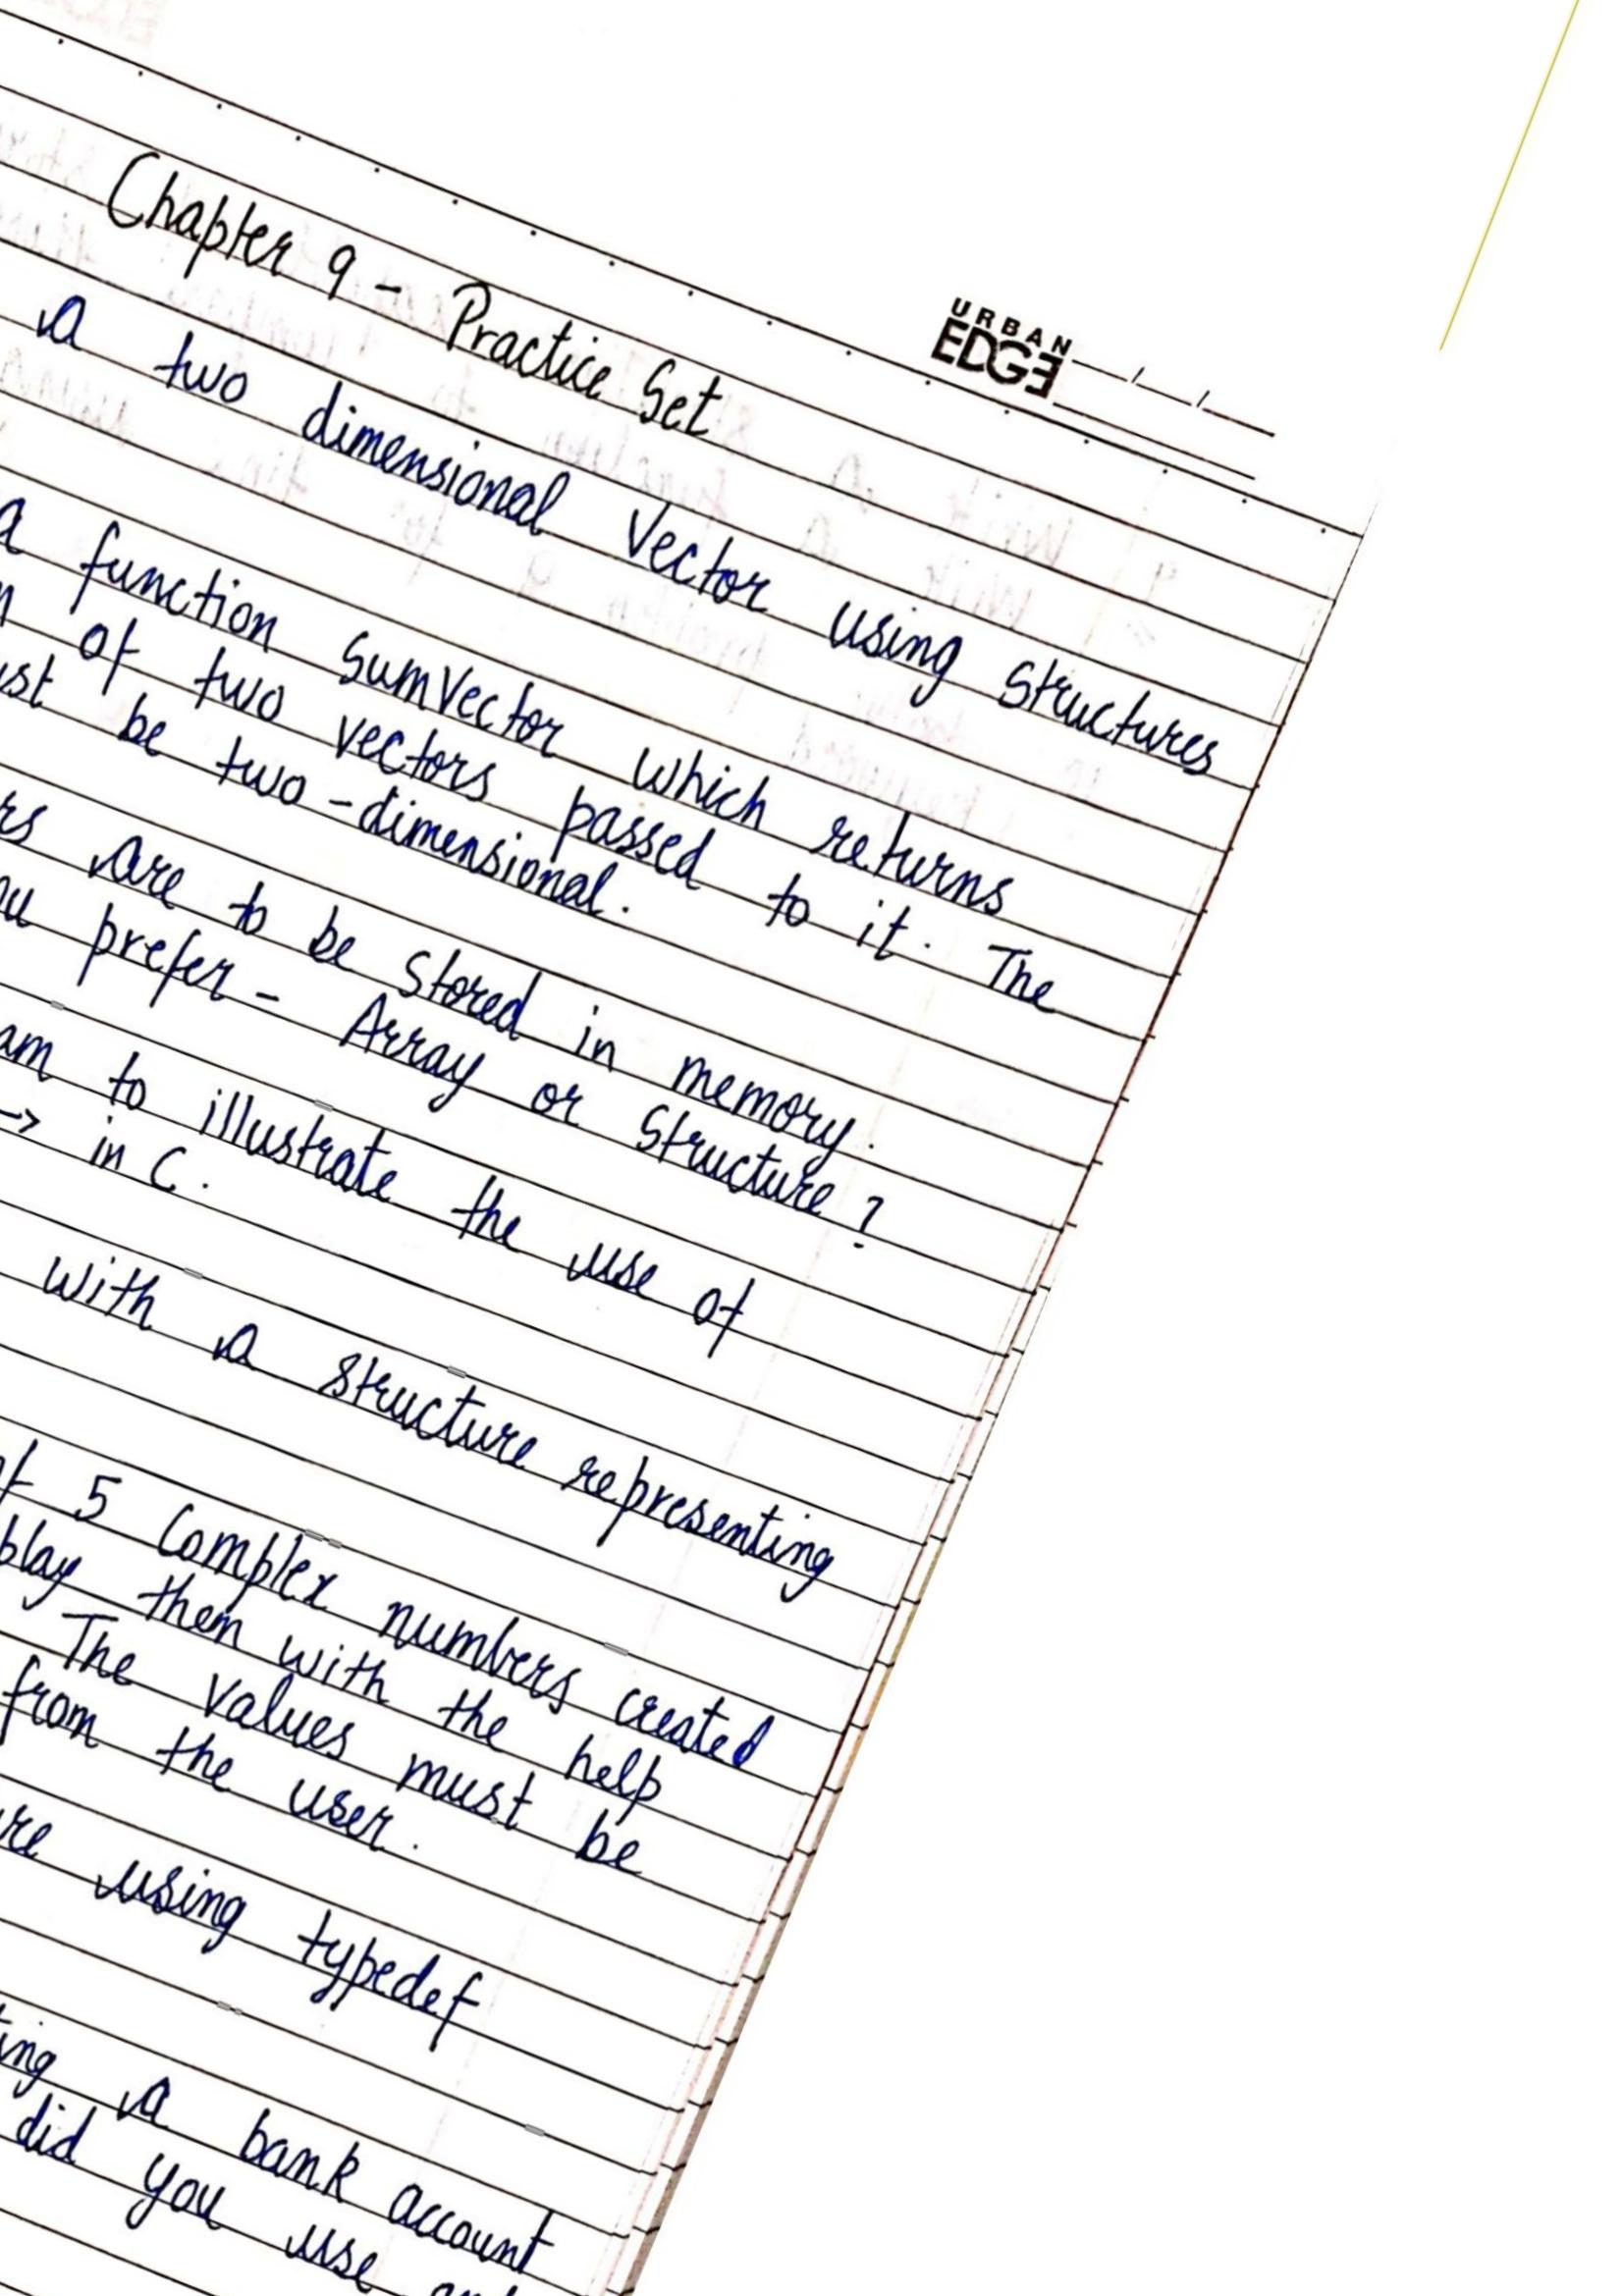 URBAN
EDGE
Chapter 9 - Practice Set
a two dimensional Vector using Structures
a function SumVector which returns
of two vectors passed to it. The
be two-dimensional.
are to be stored in memory.
prefer - Array or Structure?
to illustrate the use of
-> in C.
with a structure representing
5 Complex numbers created
them with the help
The values must be
from the user.
using typedef
a bank account
did you use